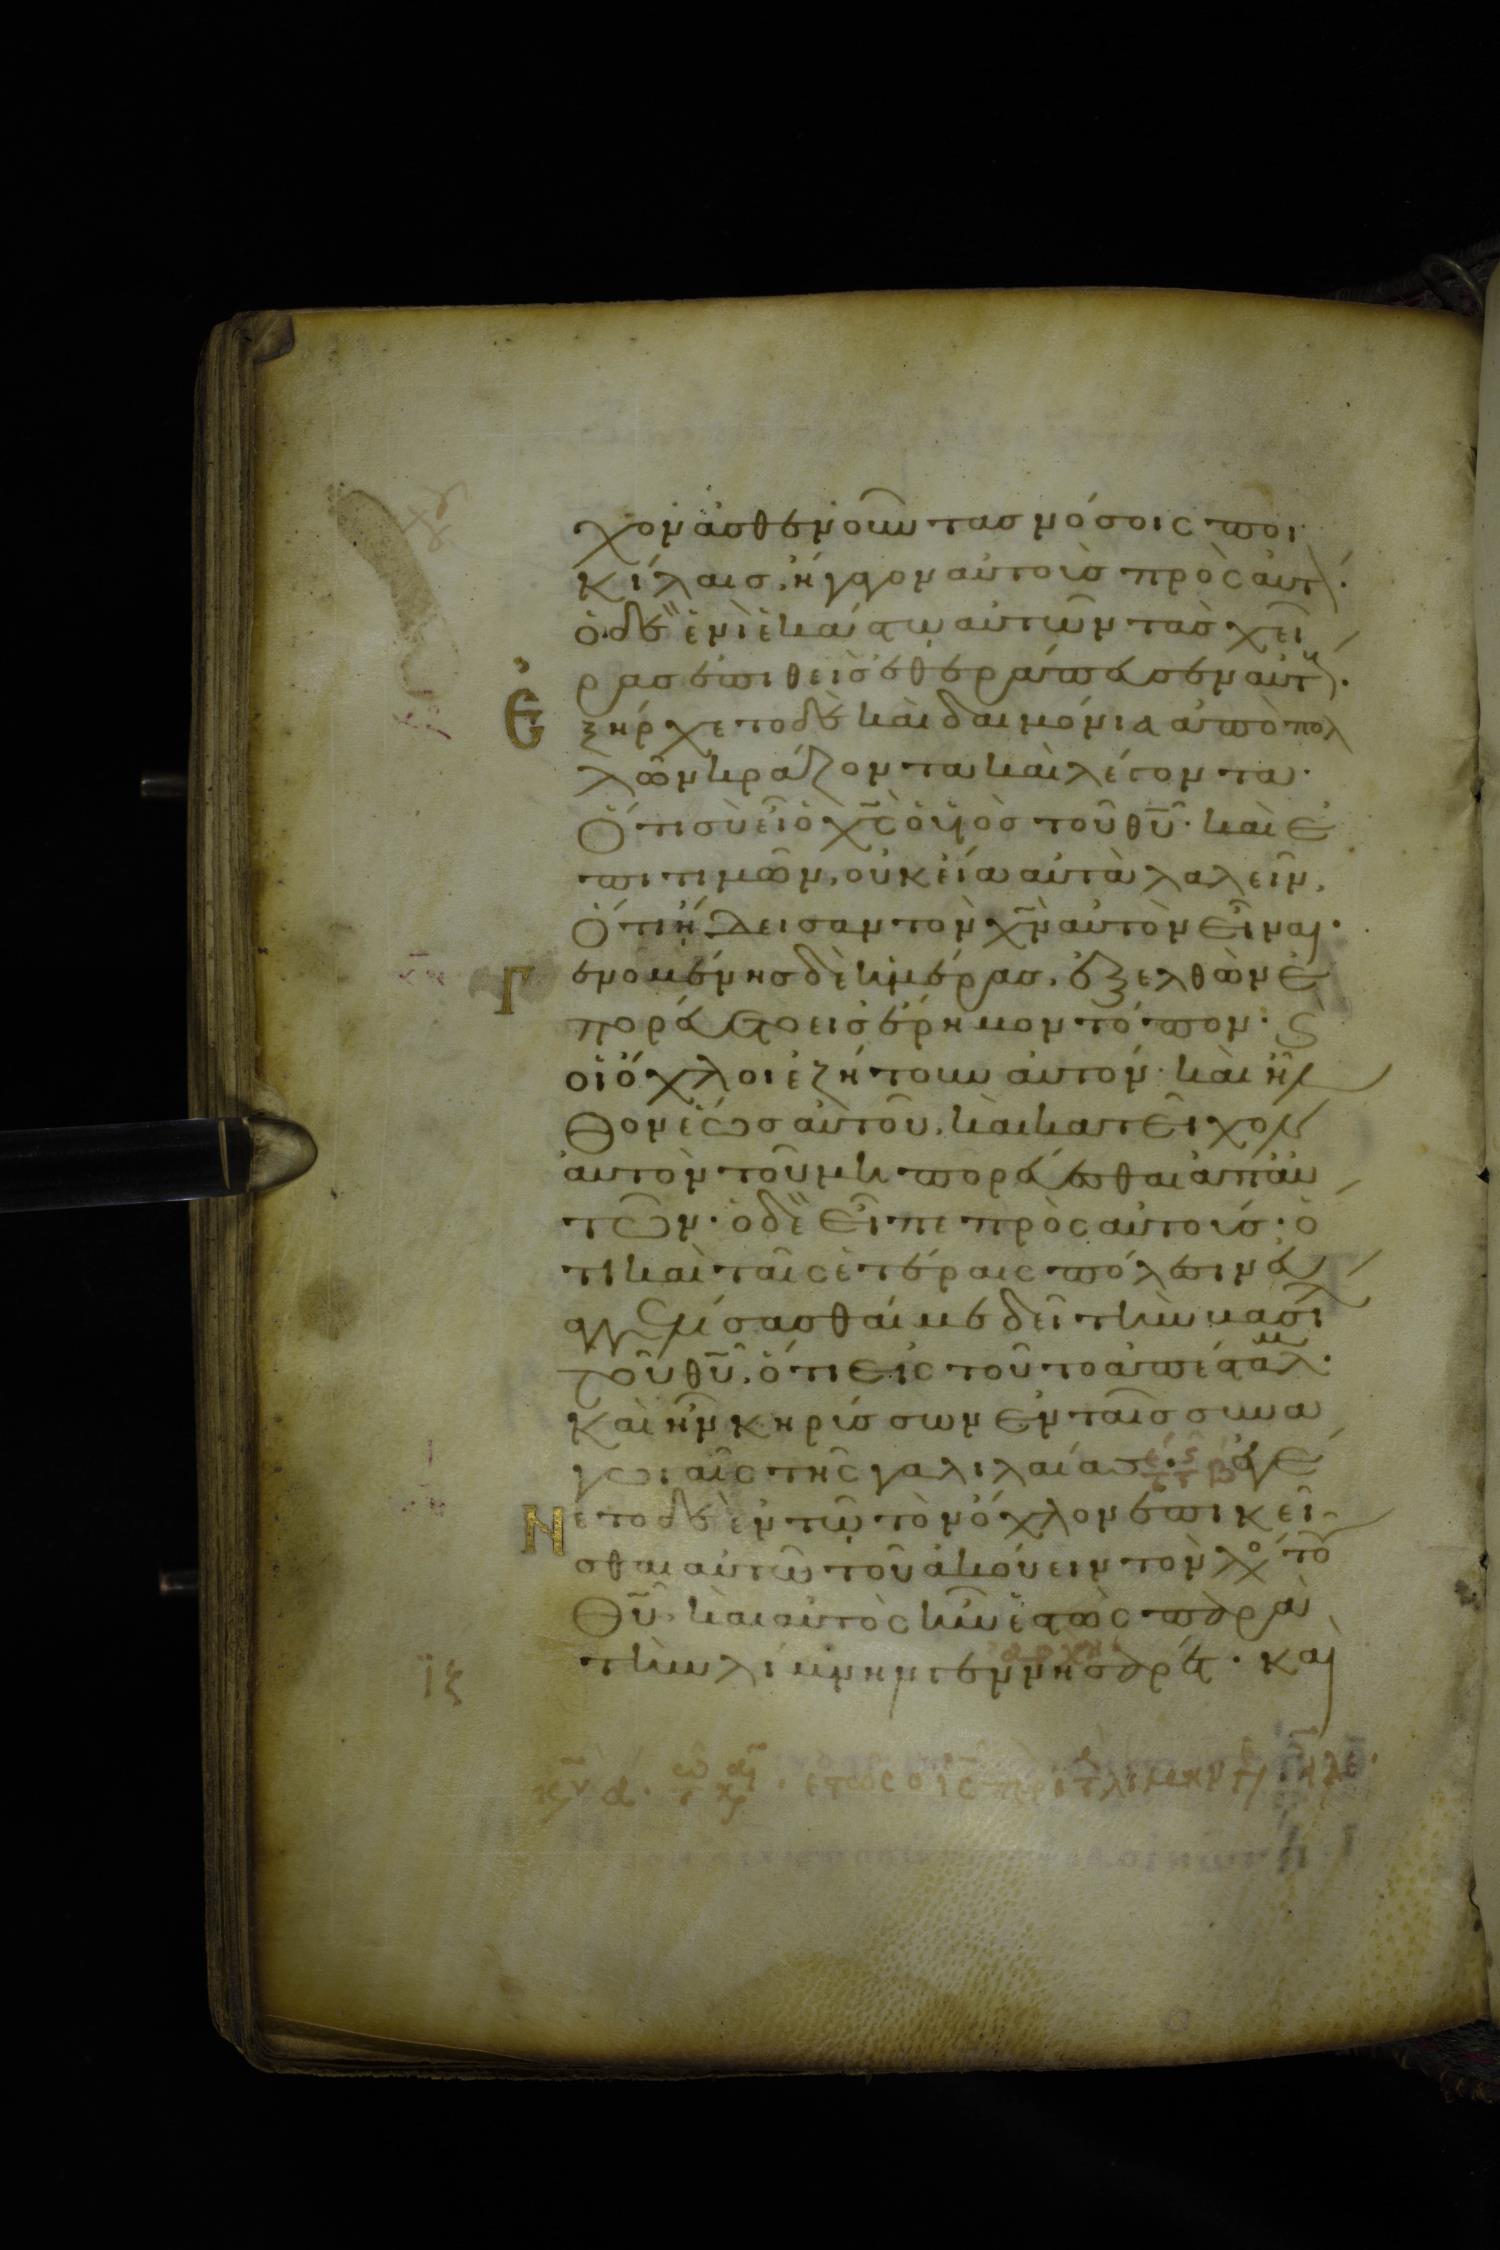 χον ἀσθενοῦντασ νόσοις ποι
κίλαισ, ἤγαγον αὐτοὺσ πρὸς αὐτ·
ὁ δὲ ἑνὶ ἑκάστω αὐτῶν τὰσ χεῖ
ρασ ἐπιθεὶσ ἐθεράπευσεν αὐτ·
Ἐ ξήρχετο δὲ καὶ δαιμόνια ἀπὸ πολ
λῶν κράζοντα καὶ λέγοντα·
Ὅτι σὺ εἶ ὁ χς ὁ υἱὸσ τοῦ θυ· καὶ ἐ
πιτιμῶν, οὐκ εἴα αὐτὰ λαλεῖν,
Ὅτι ἤδεισαν τὸν χν αὐτὸν εἶναι·
Γ ενομένησ δὲ ἡμέρασ, ἐξελθὼν ἐ
πορεύθη εἰσ ἔρημον τόπον· καὶ
οἱ ὄχλοι ἐζήτουν αὐτόν· καὶ ἦλ
θον ἕωσ αὐτοῦ, καὶ κατεῖχον
αὐτὸν τοῦ μὴ πορεύεσθαι ἀπ' αὐ
τῶν· ὁ δὲ εἶπε πρὸς αὐτούσ· ὅ
τι καὶ ταῖς ἑτέραις πόλεσιν εὐ
αγγελίσασθαί με δεῖ τὴν βασι
τοῦ θυ, ὅτι εἰς τοῦτο ἀπέσταλμ·
Καὶ ἦν κηρύσσων ἐν ταῖσ συνα
γωγαῖς τῆς γαλιλαίασ· ἐγέ
Ν ετο δὲ ἐν τῶ τὸν ὄχλον ἐπικεῖ
σθαι αὐτῶ τοῦ ἀκούειν τὸν λο το
θυ, καὶ αὐτὸς ἦν ἑστὼς παρὰ
τὴν λίμνην γεννησαρέτ· καὶ
ιξ